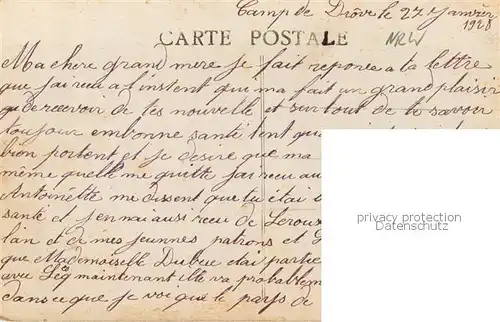 Camp de Drove le 22 Janvier
1928
CARTE POSTALE
NRW
Ma chere grand mere je fait reponce a ta lettre
que jai recu a l'instent qui ma fait un grand plaisir
de recevoir de tes nouvelle et surtout de te savoir
toujour enbonne santé tent qu
bien portent et je desire que ma
même quelle me quitte jai recu au
Antoinette me dissent que tu étai
santé et j'en mai ausi recu de Leroux
lan et de mes jeunnes patrons et
que Mademoiselle Dubue etai partie
avec maintenant ille va probablem
dans ce que je voi que le pays de
privacy protection
www.oldthing.de